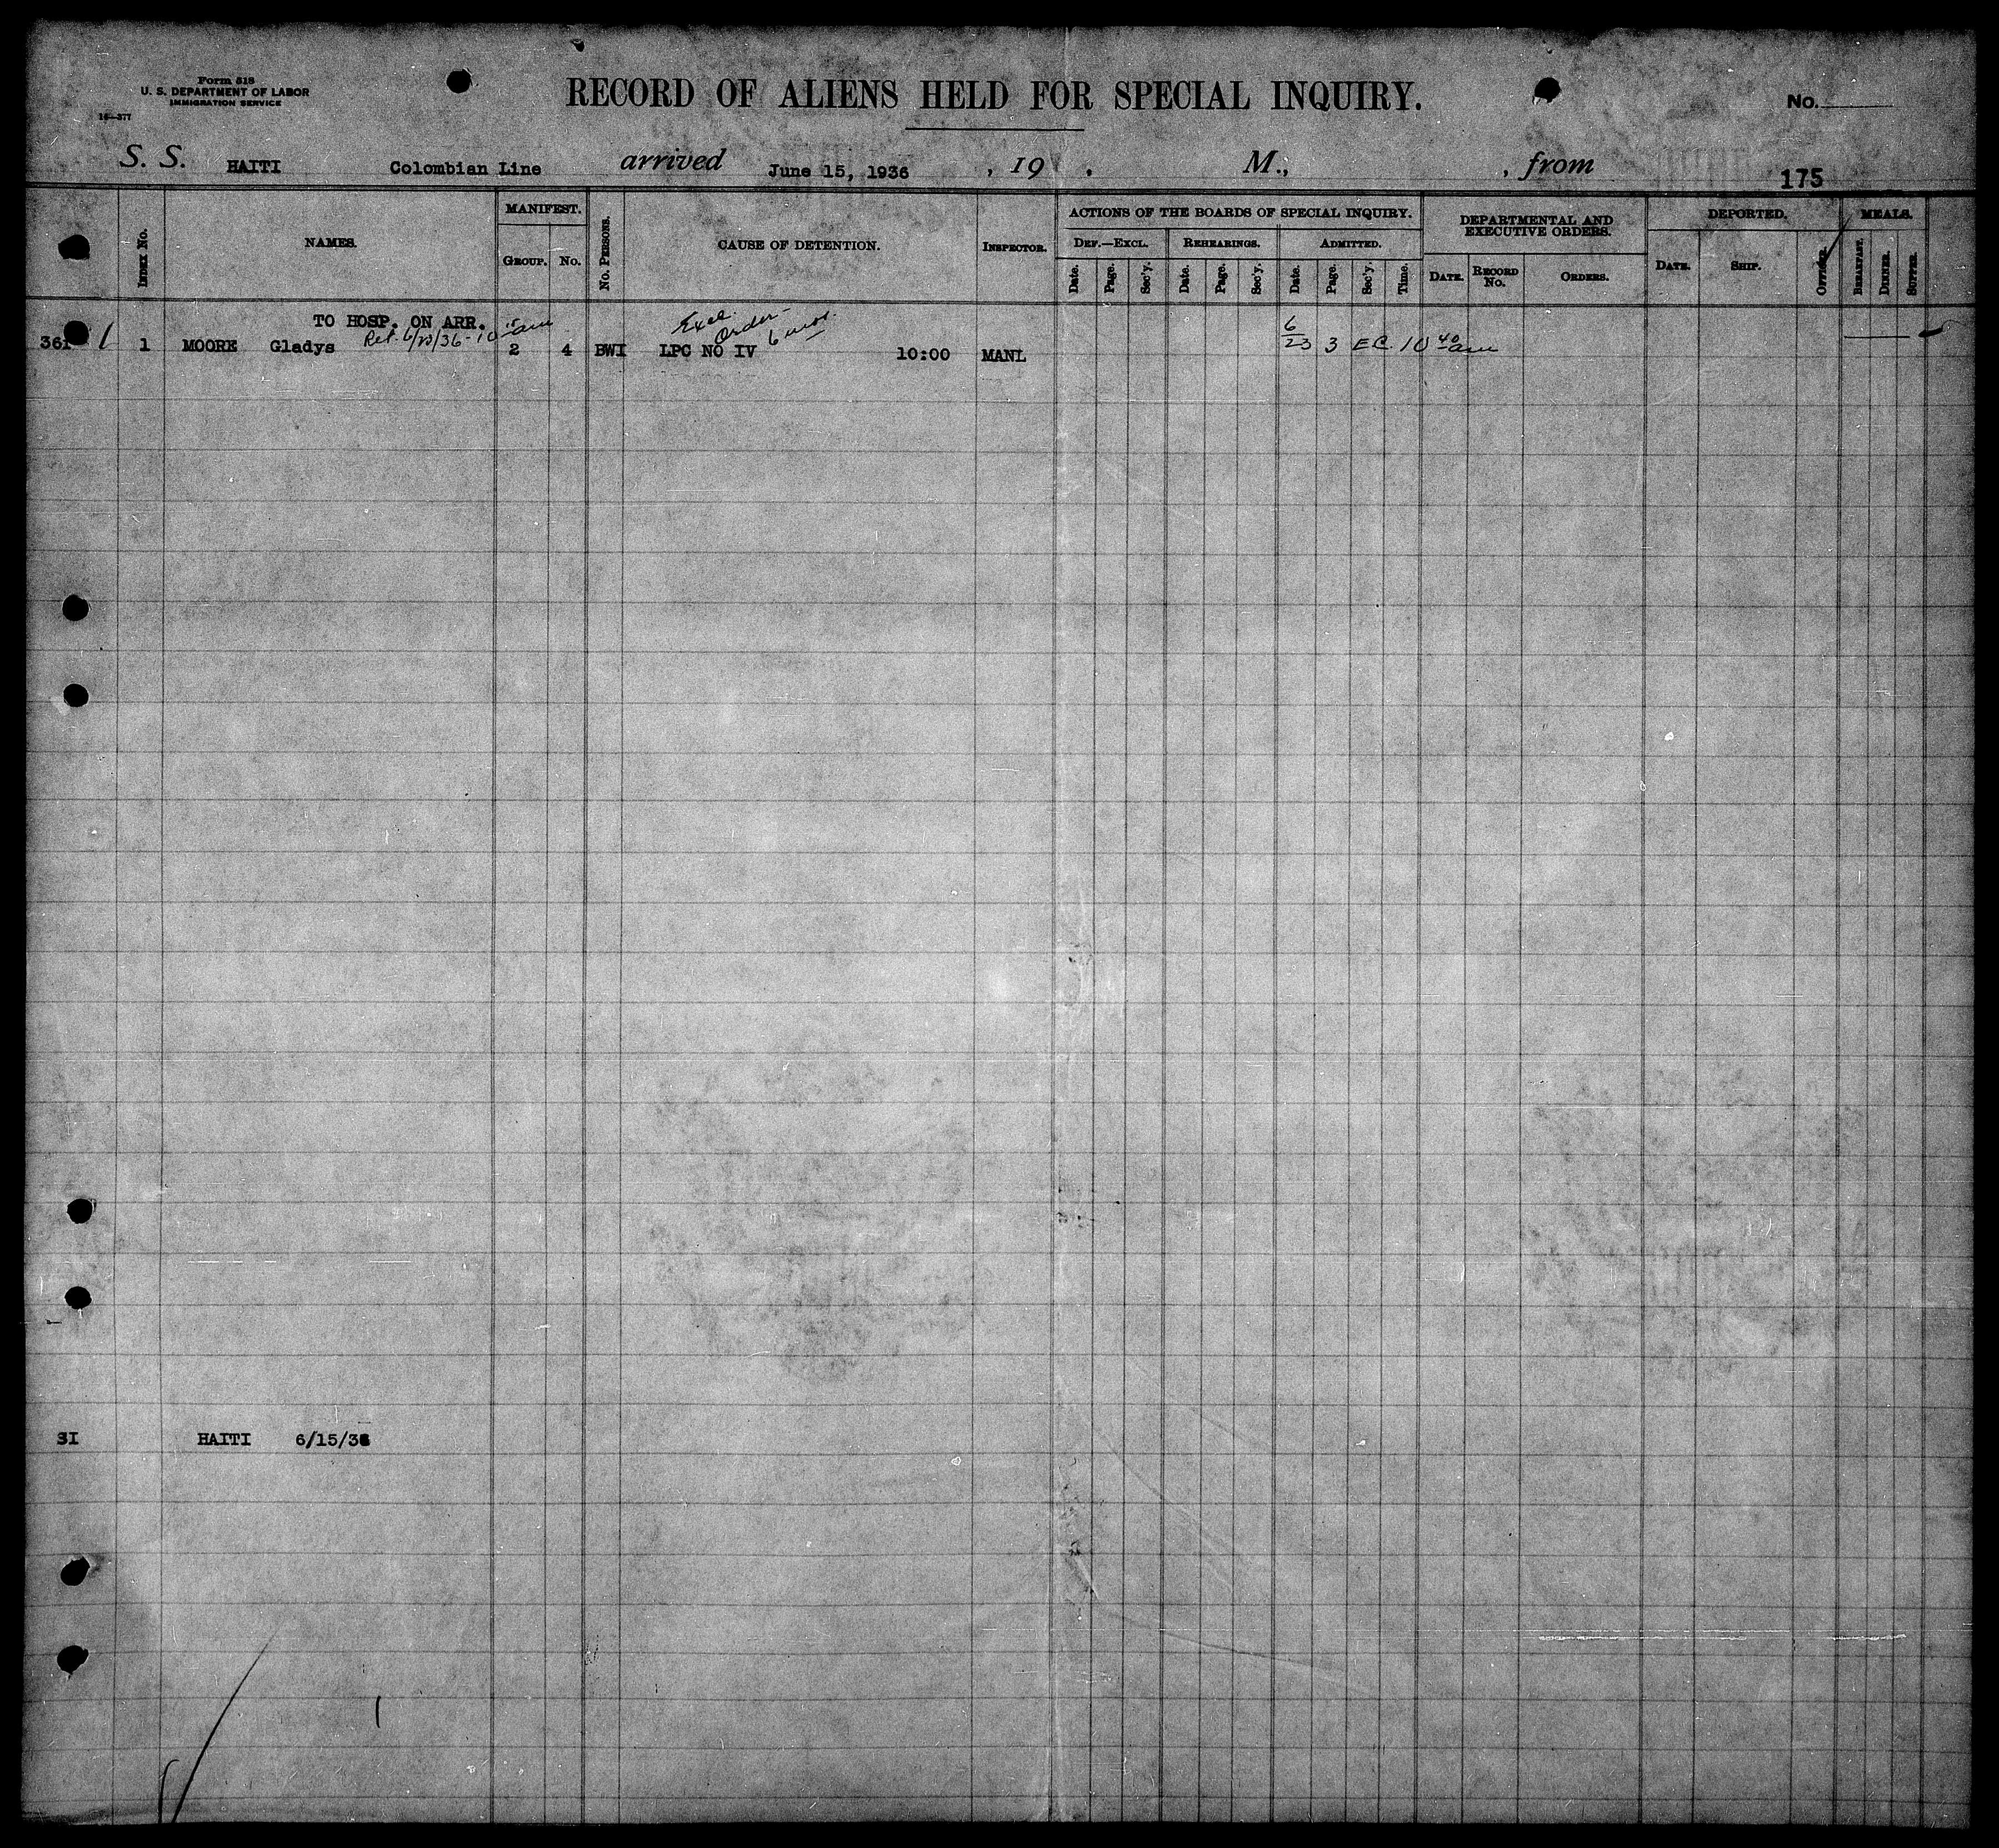 Form 518
U. S. DEPARTMENT OF LABOR
IMMIGRATION SERVICE
16—377
RECORD OF ALIENS HELD FOR SPECIAL INQUIRY.
No.
S. S. HAITI Colombian Line arrived June 15, 1936 , 19 . M., , from 175
INDEX No.
NAMES.
MANIFEST.
GROUP. No.
No. PERSONS.
CAUSE OF DETENTION.
INSPECTOR.
ACTIONS OF THE BOARDS OF SPECIAL INQUIRY.
DEF.—EXCL. REHEARINGS. ADMITTED.
Date. Page. Sec'y. Date. Page. Sec'y. Date. Page. Sec'y. Time.
DEPARTMENTAL AND
EXECUTIVE ORDERS.
DATE. RECORD No. ORDERS.
DEPORTED.
DATE. SHIP. OFFICER.
MEALS.
BREAKFAST. DINNER. SUPPER.
TO HOSP. ON ARR.
Ret. 6/23/36-10 15 am
Exec. Order- 6 mos.
361 1 1 MOORE Gladys 2 4 BWI LPC NO IV 10:00 MANL 6/23 3 E.C. 10 40 am
SI HAITI 6/15/36